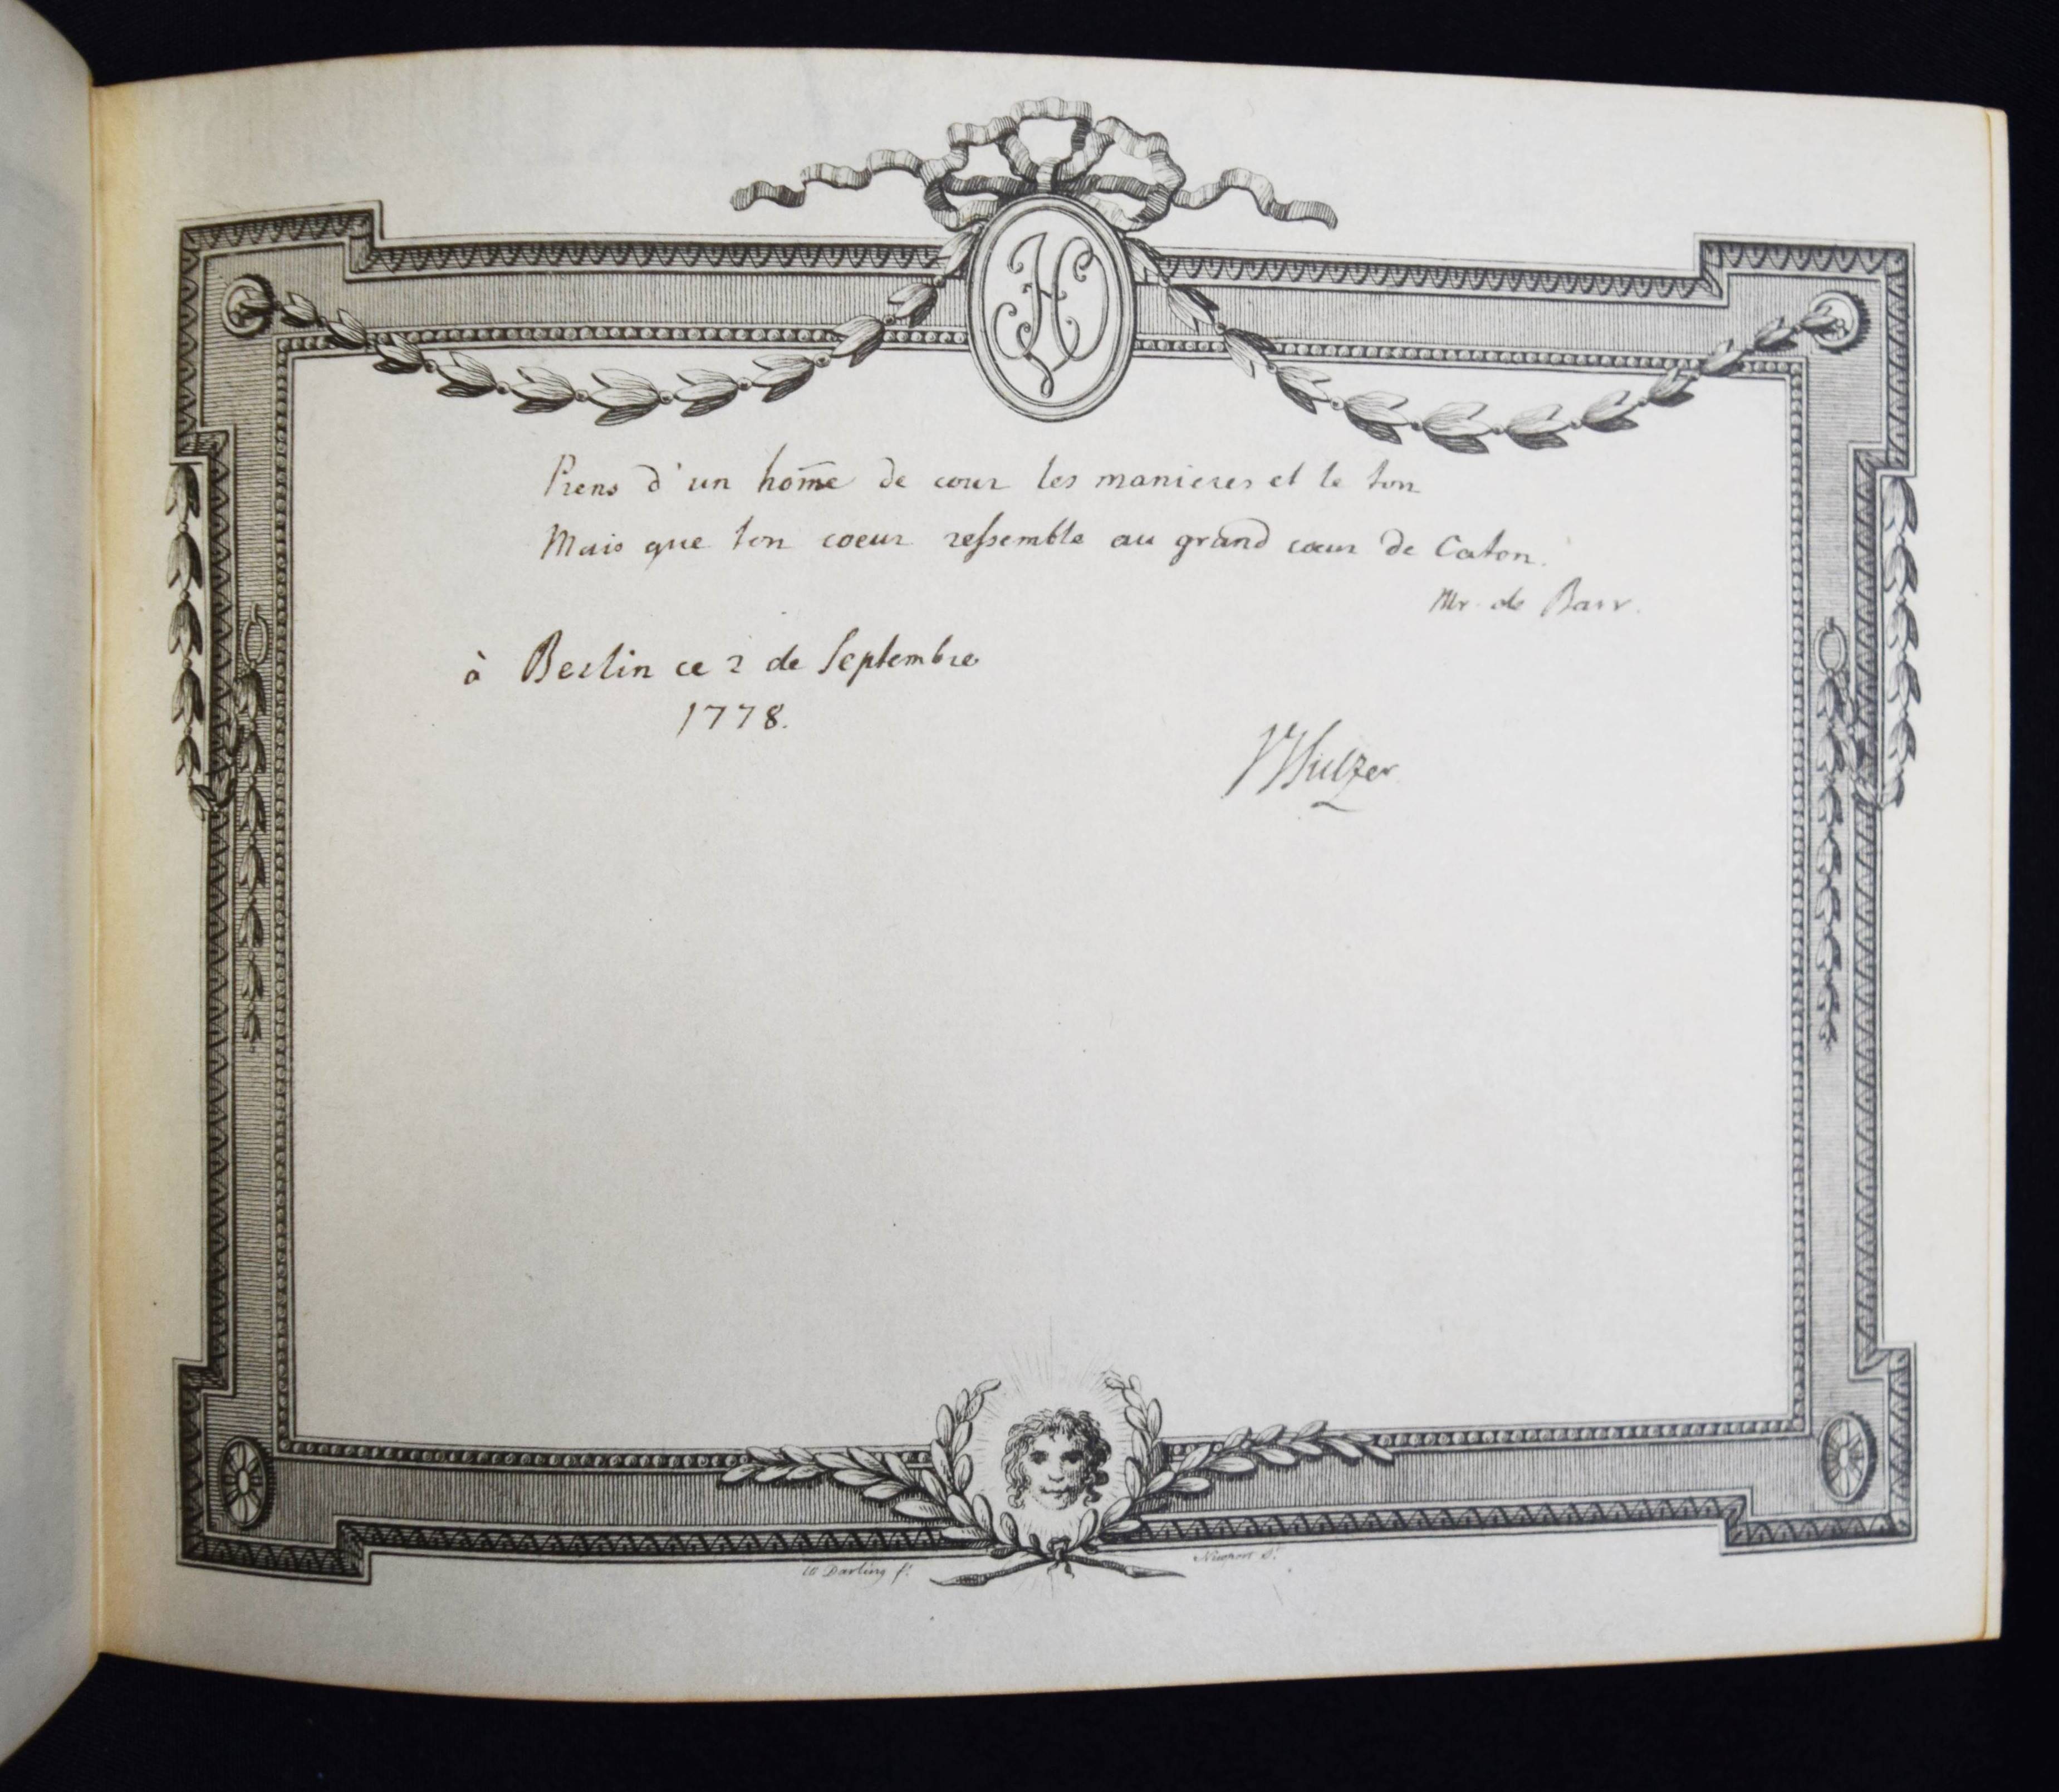 Prens d'un hom̄e de cour les manieres et le ton
Mais que ton coeur ressemble au grand cœur de Caton.
Mr. de Barr.
à Berlin ce 2 de Septembre
1778.
Sulzer
W Darling f.t
Newport S.t